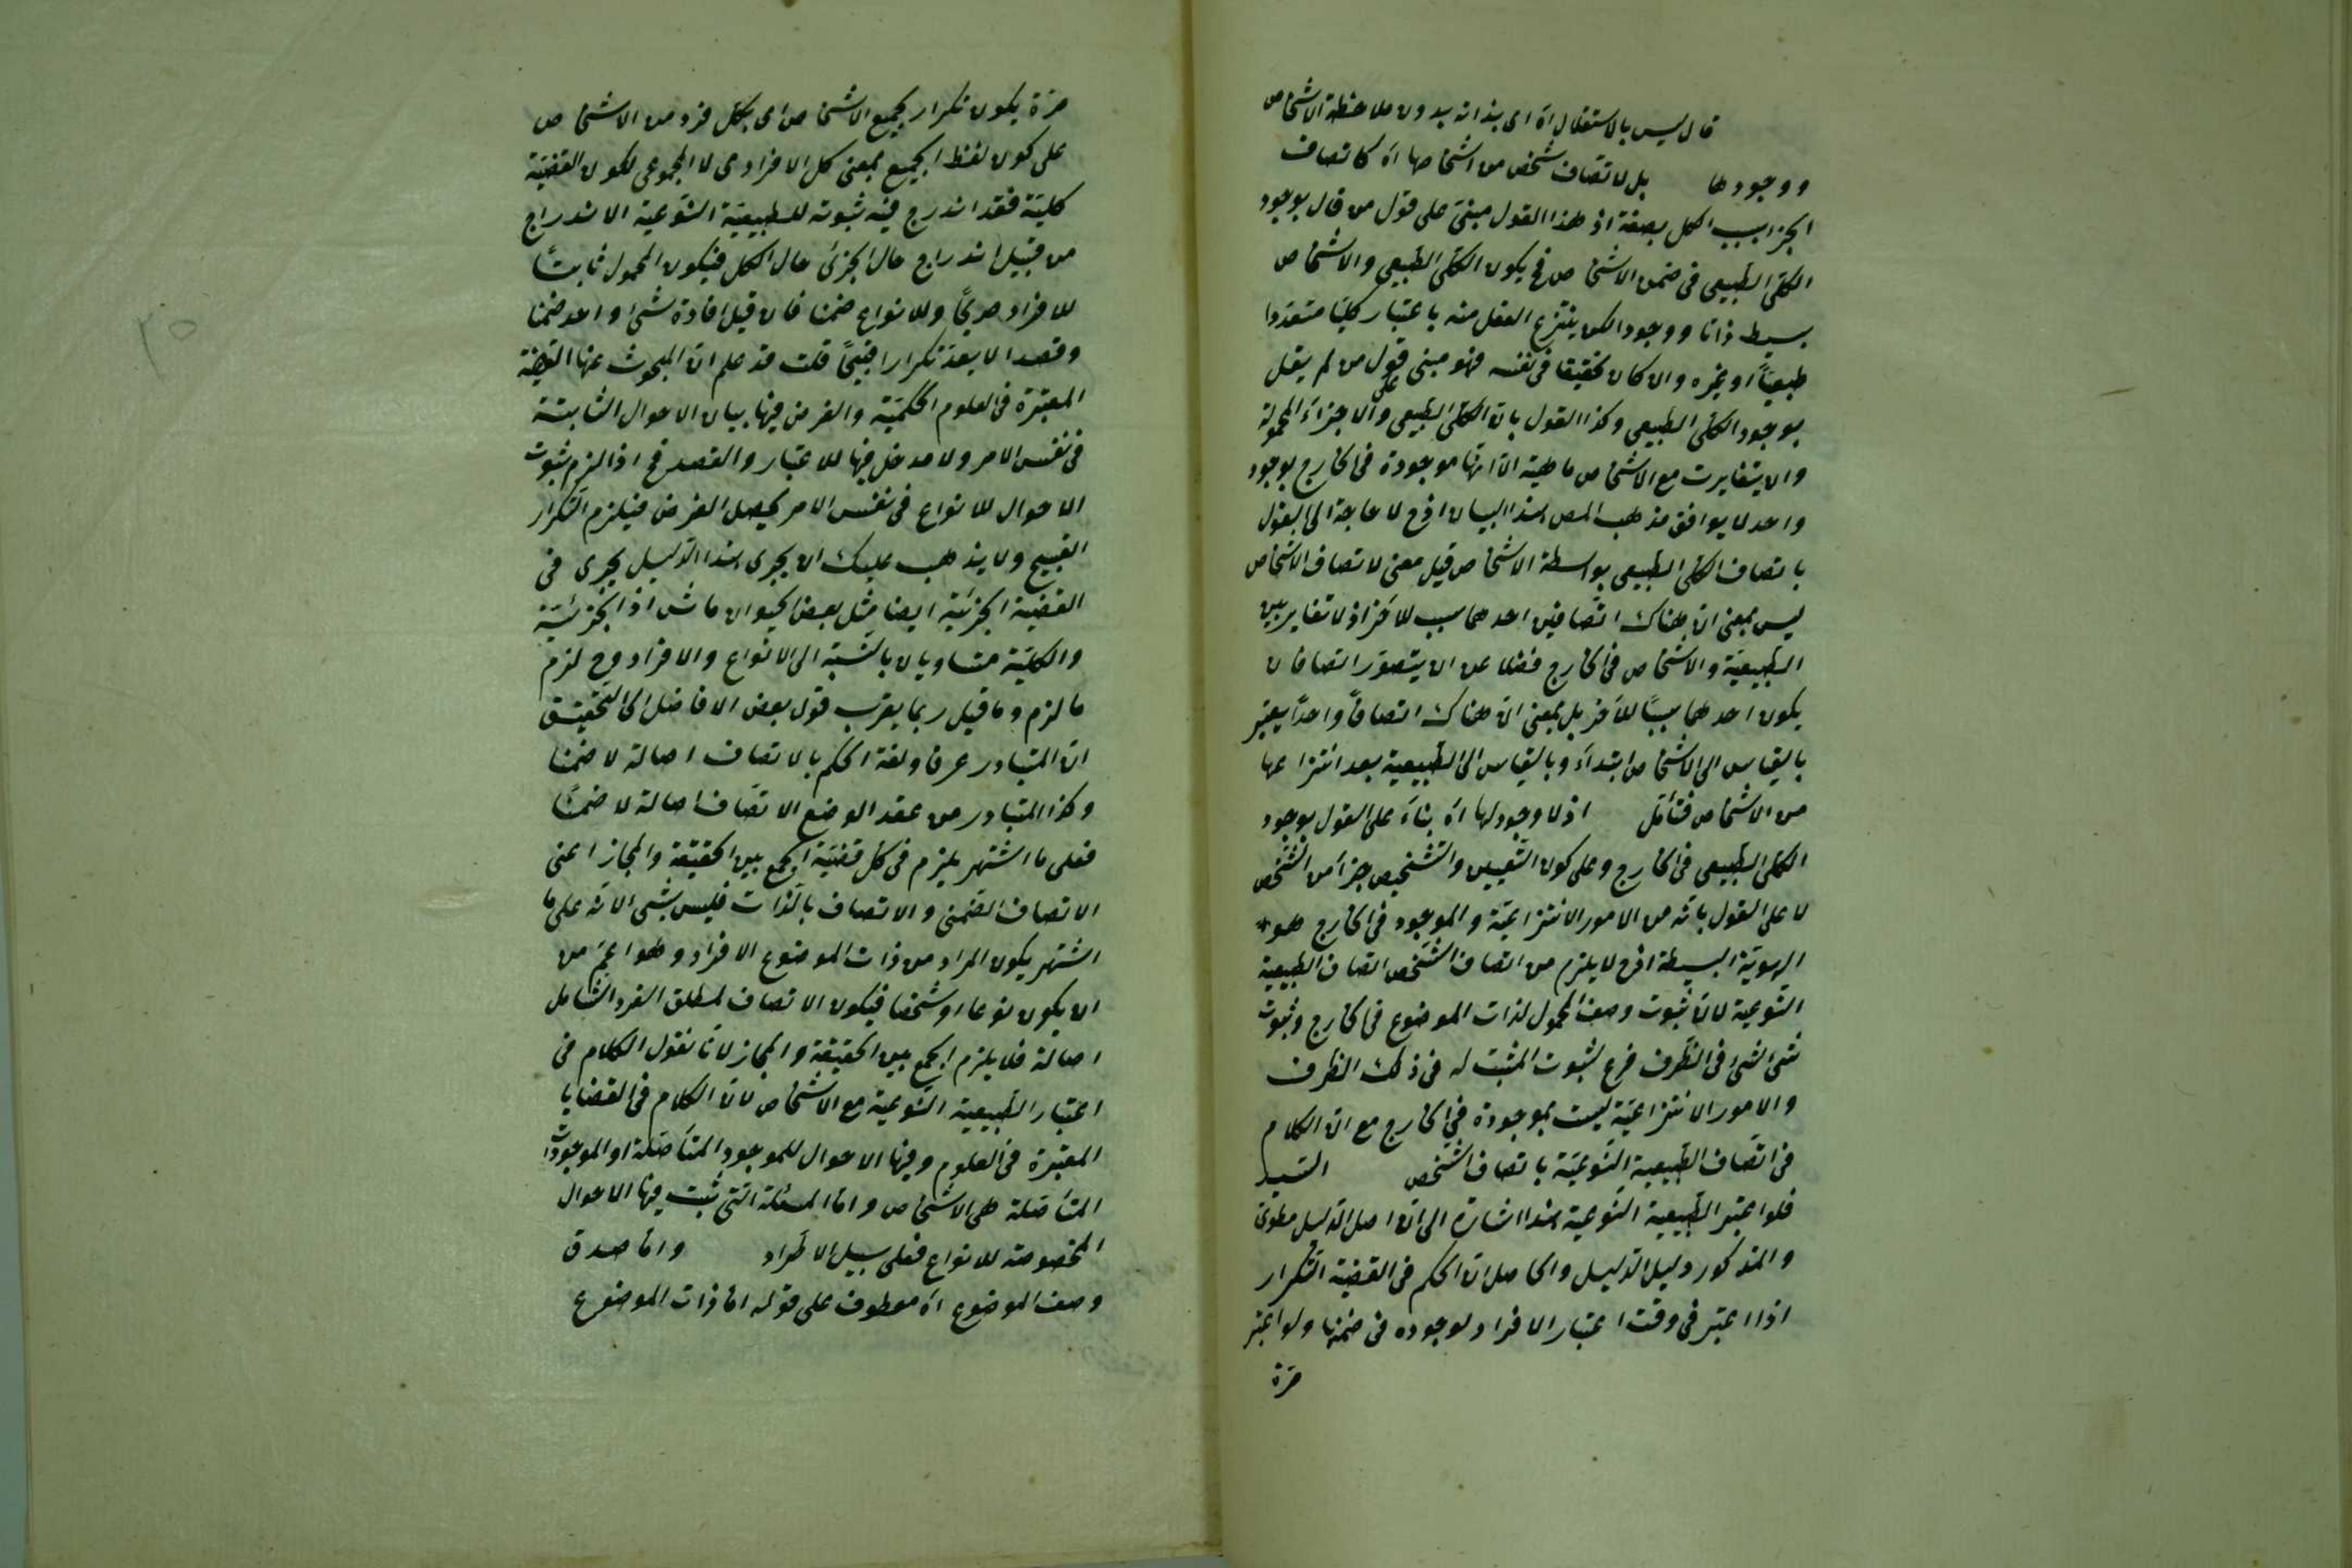 قال ليس بالاستقلال اه اى بذاته بدون ملاحظة الاشخاص
ووجودها بل لاتصاف شخص من اشخاصها اه كاتصاف
الجزء بسبب الكل بصفة اذ هذا القول مبنى على قول من قال بوجود
الكلى الطبيعى فى ضمن الاشخاص فح يكون الكلى الطبيعى والاشخاص
بسيط ذاتا ووجودا لكن ينتزع العقل منه باعتبار كليا متعددا
طبيعيا او غيره وان كان تحقيقا فى نفسه فهو مبنى على قول من لم يقل
بوجود الكلى الطبيعى وكذا القول بان الكلى الطبيعى والاجزاء المحمولة
وان يتغايرت مع الاشخاص ماهية الا انها موجودة فى الخارج بوجود
واحد لا يوافق مذهب المص هذا البيان اذ ح لا حاجة الى القول
باتصاف الكلى الطبيعى بواسطة الاشخاص قيل معنى لاتصاف الاشخاص
ليس بمعنى ان هناك اتصافين احدهما سبب للآخر اذ لا تغاير بين
الطبيعية والاشخاص فى الخارج فضلا عن ان يتصور اتصافان
يكون احدهما سببا للآخر بل بمعنى ان هناك اتصافا واحدا يعتبر
بالقياس الى الاشخاص ابتداء وبالقياس الى الطبيعية بعد انتزاعها
من الاشخاص فتأمل اذ لا وجود لها اه بناء على القول بوجود
الكلى الطبيعى فى الخارج وعلى كون التعيين والتشخيص جزأ من الشخص
لا على القول بانه من الامور الانتزاعية والموجود فى الخارج هو
الهوية البسيطة اذ ح لا يلزم من اتصاف الشخص اتصاف الطبيعية
النوعية لان ثبوت وصف المحمول لذات الموضوع فى الخارج وثبوت
شئ لشئ فى الظرف فرع لثبوت المثبت له فى ذلك الظرف
والامور الانتزاعية ليست بموجودة فى الخارج مع ان الكلام
فى اتصاف الطبيعية النوعية باتصاف الشخص السيد
فلو اعتبر الطبيعية النوعية هذا اشارة الى ان اصل الدليل مطوى
والمذكور دليل الدليل والحاصل ان الحكم فى القضية التكرار
اذا اعتبر فى وقت اعتبار الافراد لوجوده فى ضمنها ولو اعتبر
مرة
مرة يكون تكرار بجميع الاشخاص اى بكل فرد من الاشخاص
على كون لفظ الجميع بمعنى كل الافرادى لا المجموعى لكون القضية
كلية فقد اندرج فيه ثبوته للطبيعية النوعية الاندراج
من قبيل اندراج حال الجزئ حال الكل فيكون المحمول ثابتا
للافراد صريحا وللانواع ضمنا فان قيل افادة شئ واحد ضمنا
وقصدا لا يعد تكرارا قبيحا قلت قد علم ان المبحوث عنها القضية
المعتبرة فى العلوم الحكمية والغرض فيها بيان الاحوال الثابتة
فى نفس الامر ولا مدخل فيها للاعتبار والقصد فح اذا لزم ثبوت
الاحوال للانواع فى نفس الامر يحصل الغرض فيلزم التكرار
القبيح ولا يذهب عليك ان يجرى هذا الدليل يجرى فى
القضية الجزئية ايضا مثل بعض الحيوان ماش اذ الجزئية
والكلية متساويان بالنسبة الى الانواع والافراد وح لزم
ما لزم وما قيل ربما يقرب قول بعض الافاضل الى التحقيق
ان المتبادر عرفا ولغة الحكم بالاتصاف اصالة لا ضمنا
وكذا المتبادر من عقد الوضع الاتصاف اصالة لا ضمنا
فعلى ما اشتهر يلزم فى كل قضية الجمع بين الحقيقة والمجاز اعنى
الاتصاف الضمنى والاتصاف بالذات فليس بشئ لانه على ما
اشتهر يكون المراد من ذات الموضوع الافراد وهو اعم من
ان يكون نوعا او شخصا فيكون الاتصاف لمطلق الفرد الشامل
اصالة فلا يلزم الجمع بين الحقيقة والمجاز لانا نقول الكلام فى
اعتبار الطبيعية النوعية مع الاشخاص لان الكلام فى القضايا
المعتبرة فى العلوم وفيها الاحوال للموجود المتأصلة او الموجودات
المتأصلة هى الاشخاص واما المسئلة التى ثبت فيها الاحوال
المخصوصة للانواع فعلى سبيل الاطراد واما صدق
وصف الموضوع اه معطوف على قوله اما ذات الموضوع
٢٥